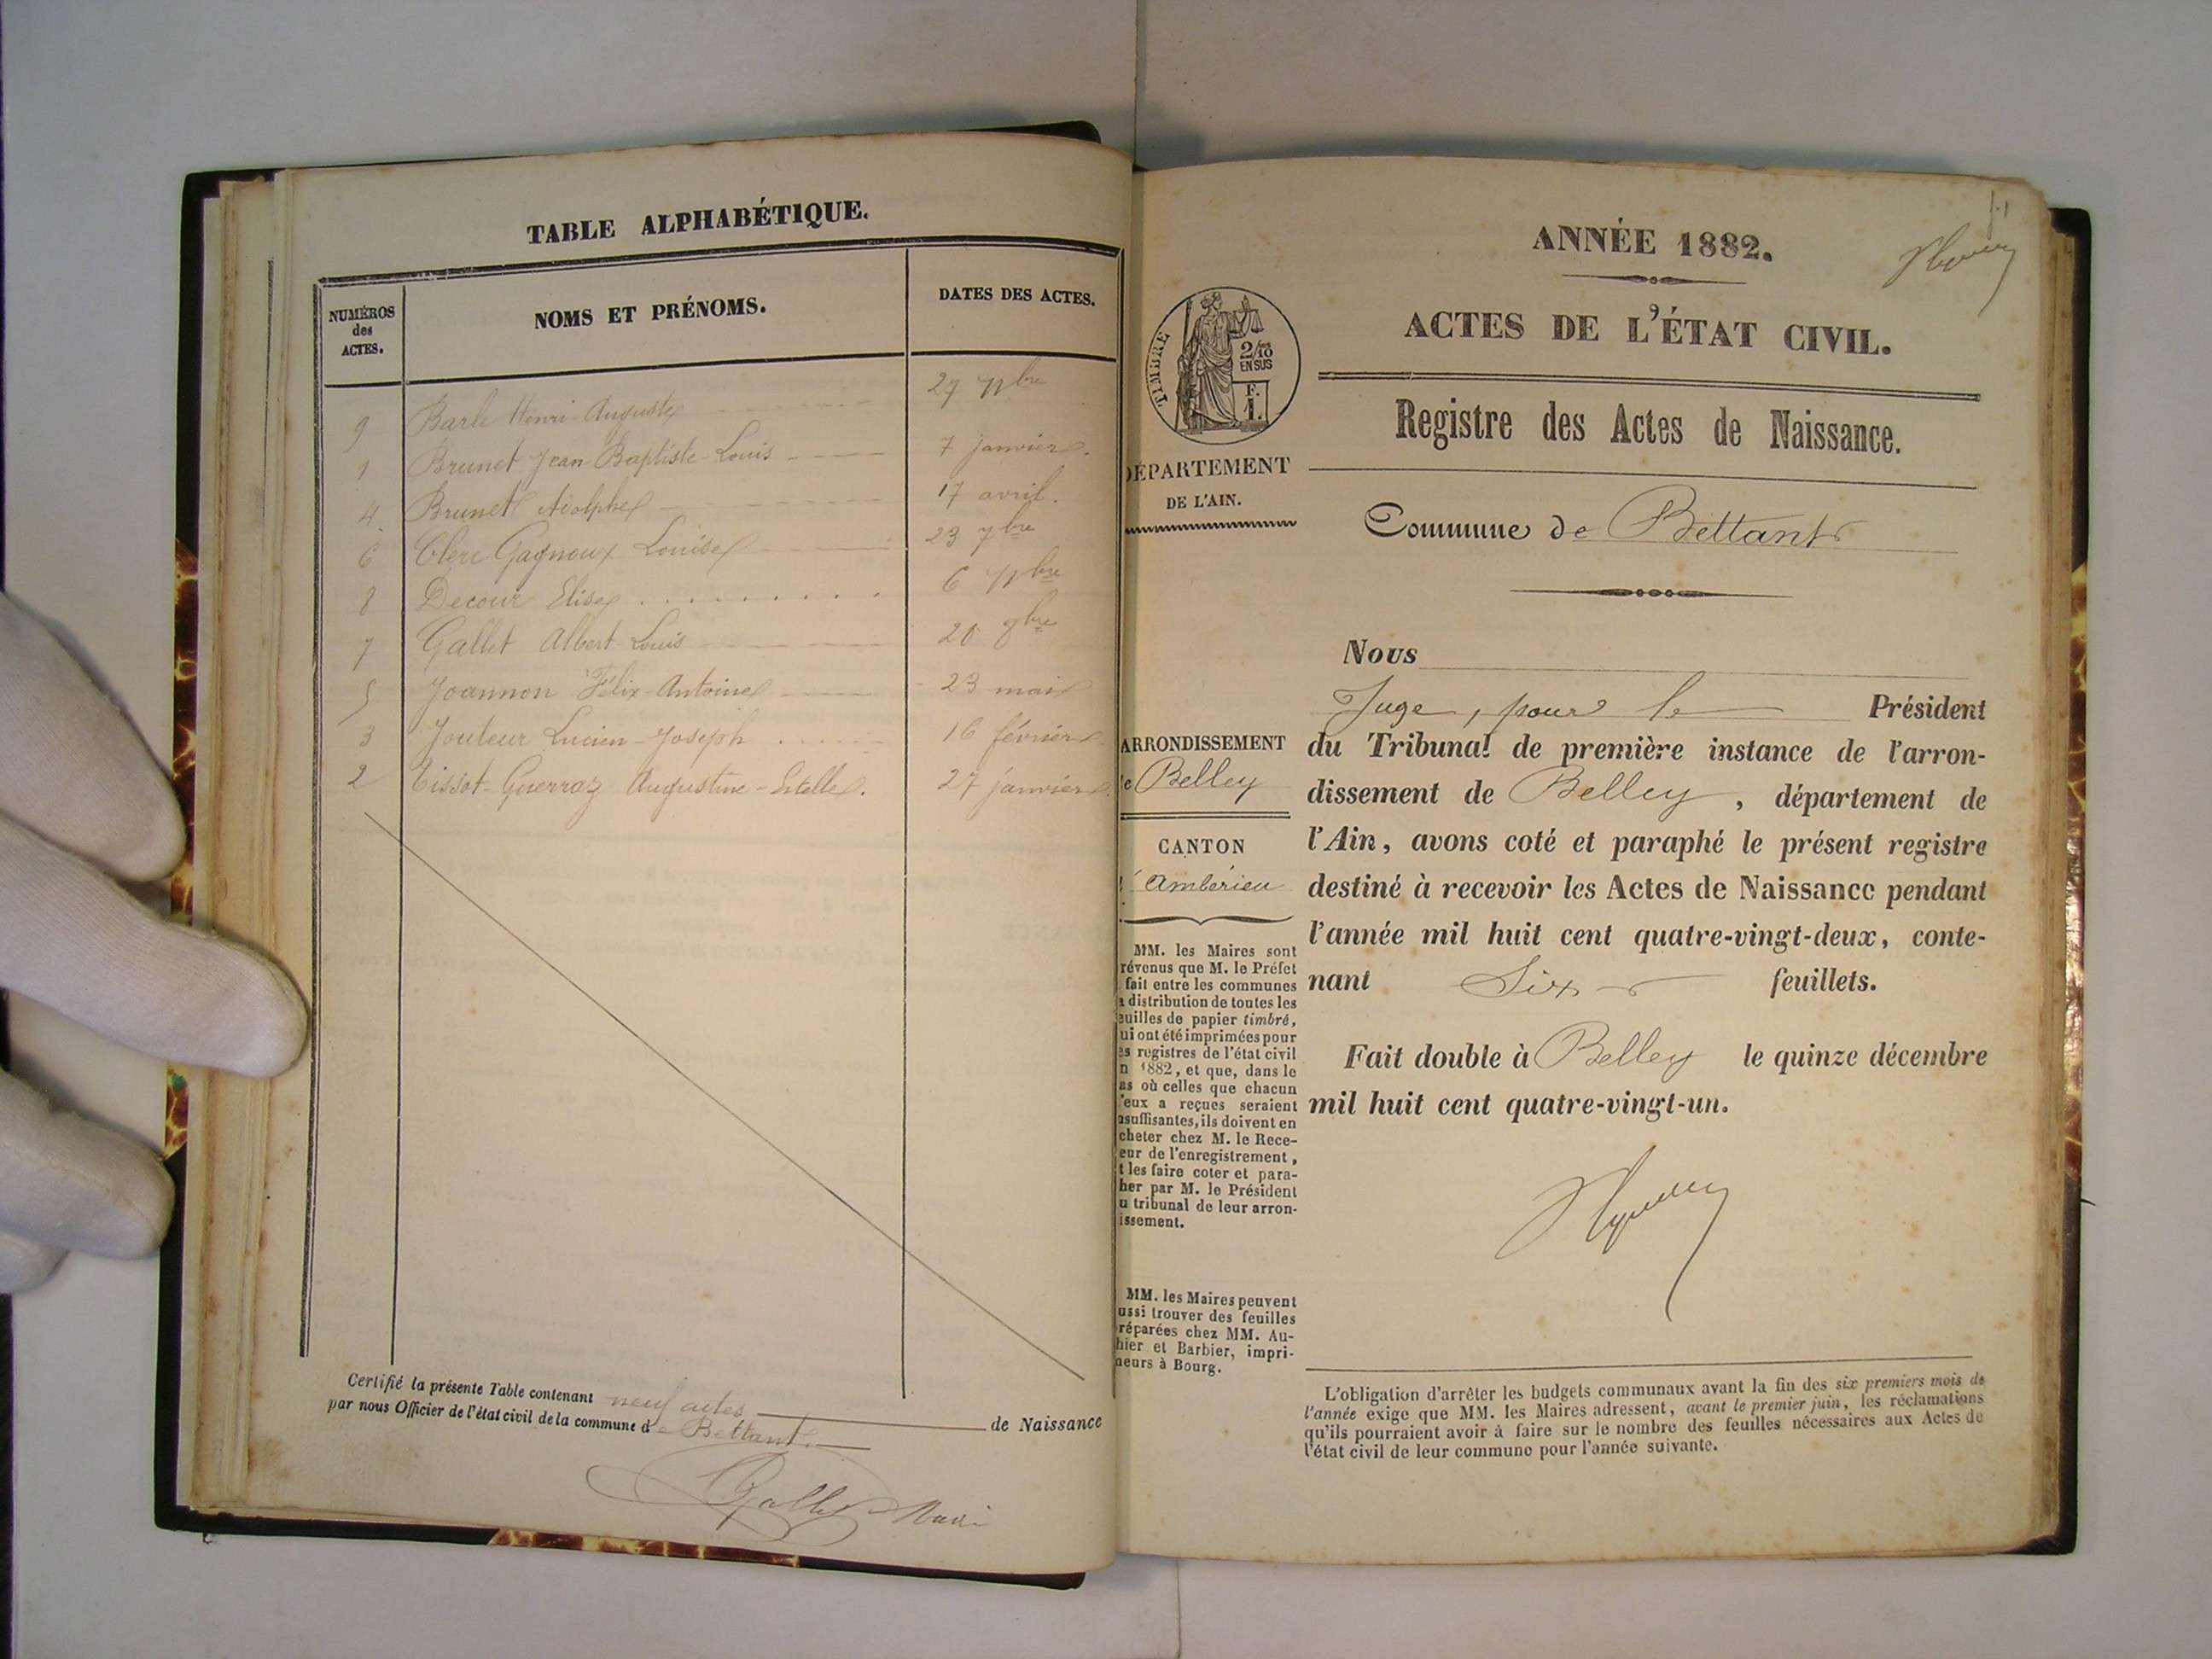 TABLE ALPHABÉTIQUE.
NUMÉROS des ACTES. NOMS ET PRÉNOMS. DATES DES ACTES.
9 Barle Henri-Auguste 27 9bre
1 Brunet Jean-Baptiste-Louis 7 janvier.
4 Brunet Adolphe 17 avril.
6 Clerc-Gagnoux Louise 23 7bre
8 Decour Elise 6 9bre
7 Gallet Albert Louis 20 8bre
5 Joannon Félix-Antoine 23 mai
3 Jouteur Lucien-Joseph 16 février
2 Tissot-Guerraz Augustine-Estelle. 27 janvier.
Certifié la présente Table contenant neuf actes de Naissance
par nous Officier de l'état civil de la commune de Bettant.
Gallet Maire
ANNÉE 1882.
ACTES DE L'ÉTAT CIVIL.
TIMBRE
2/10 EN SUS
F. 1.
Registre des Actes de Naissance.
DÉPARTEMENT
DE L'AIN.
Commune de Bettant
Nous
Juge, pour le Président
du Tribunal de première instance de l'arron-
dissement de Belley, département de
l'Ain, avons coté et paraphé le présent registre
destiné à recevoir les Actes de Naissance pendant
l'année mil huit cent quatre-vingt-deux, conte-
nant Six feuillets.
Fait double à Belley le quinze décembre
mil huit cent quatre-vingt-un.
ARRONDISSEMENT
e Belley
CANTON
Ambérieu
MM. les Maires sont
révenus que M. le Préfet
fait entre les communes
a distribution de toutes les
euilles de papier timbré,
ui ont été imprimées pour
es registres de l'état civil
n 1882, et que, dans le
as où celles que chacun
'eux a reçues seraient
nsuffisantes, ils doivent en
cheter chez M. le Rece-
eur de l'enregistrement,
t les faire coter et para-
her par M. le Président
u tribunal de leur arron-
issement.
MM. les Maires peuvent
ussi trouver des feuilles
réparées chez MM. Au-
hier et Barbier, impri-
neurs à Bourg.
L'obligation d'arrêter les budgets communaux avant la fin des six premiers mois de
l'année exige que MM. les Maires adressent, avant le premier juin, les réclamations
qu'ils pourraient avoir à faire sur le nombre des feuilles nécessaires aux Actes de
l'état civil de leur commune pour l'année suivante.